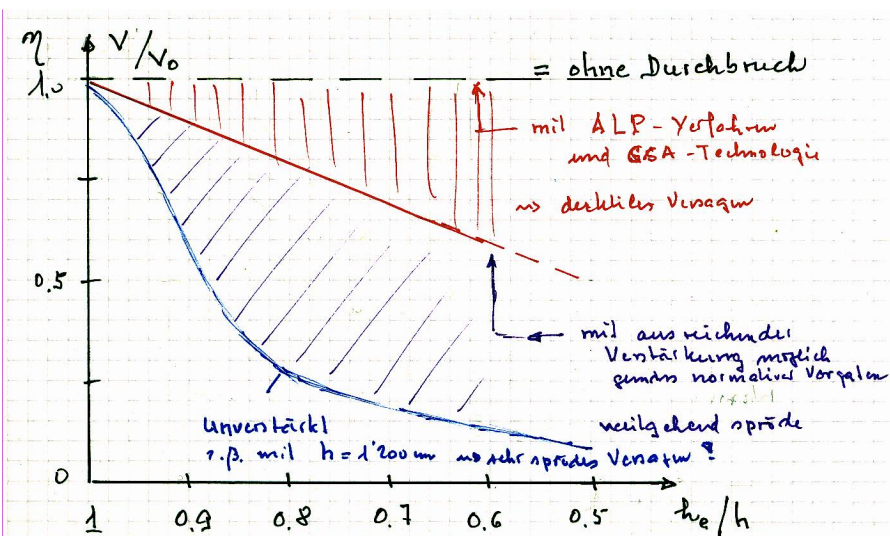 η V/V₀
1.0
= ohne Durchbruch
mit ALP-Verfahren
und GSA-Technologie
=> duktiles Versagen
0.5
mit ausreichender
Verstärkung möglich
gemäss normativer Vorgaben
unverstärkt
weitgehend spröde
z.B. mit h = 1'200 mm => sehr sprödes Versagen!
0
1 0.9 0.8 0.7 0.6 0.5 he/h